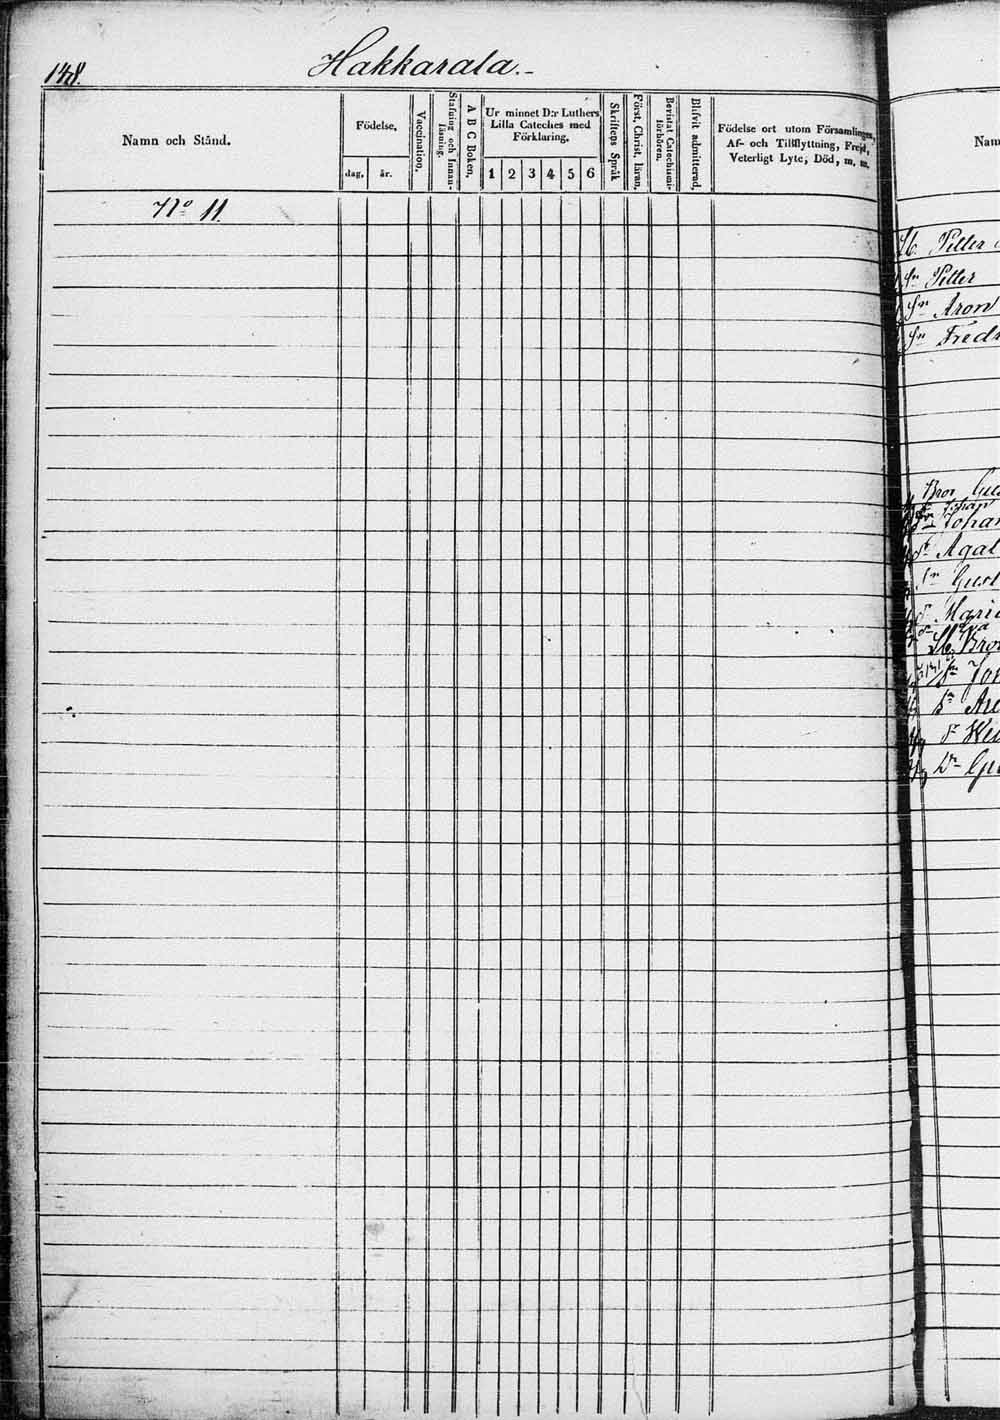 148.
Hakkarala.-
Namn och Stånd.
Födelse,
dag,
år.
Vaccination.
Stafning och Innan-
läsning.
A B C Boken,
Ur minnet D:r Luthers
Lilla Cateches med
Förklaring,
1 2 3 4 5 6
Skriftens Språk
Först, Christ, läran,
Bevistat Catechismi-
förhören.
Blifvit admitterad.
Födelse ort utom Församlingen,
Af- och Tillflyttning, Frejd,
Veterligt Lyte, Död, m, m,
Nº 11.
Petter
Sn Petter
Sn Aron
Sn Fredr
Bror Gus
Johan
Johan
Agat
Sn Gust
Mari
Bro